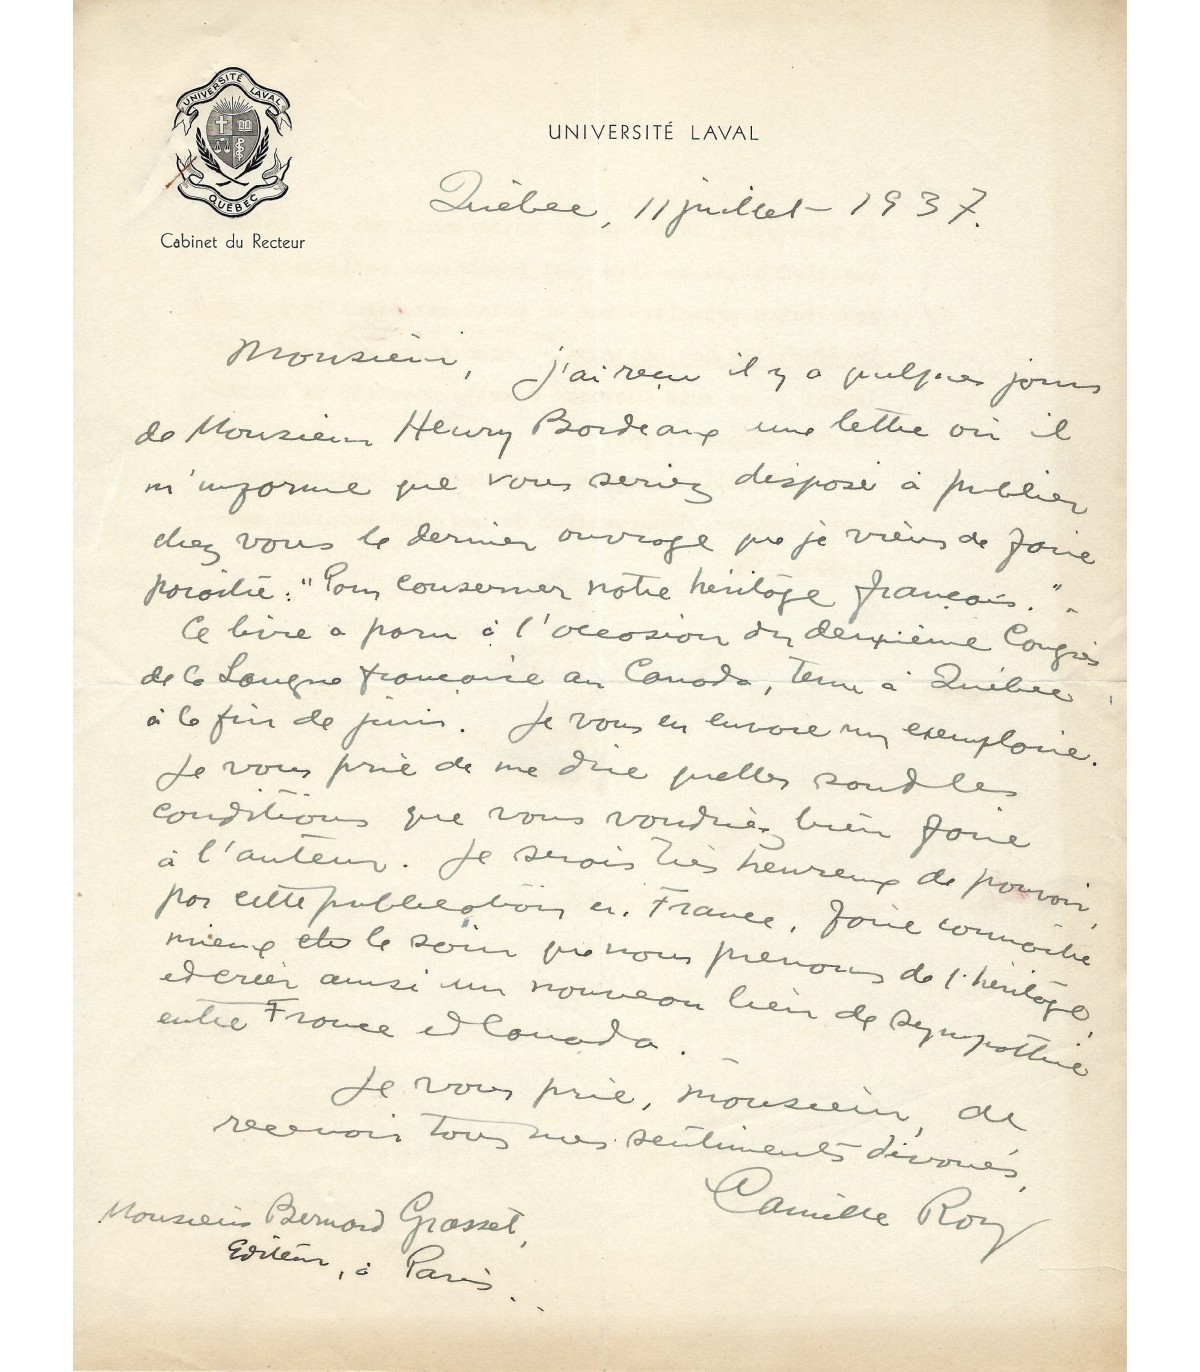 UNIVERSITÉ LAVAL
QUÉBEC
Cabinet du Recteur
UNIVERSITÉ LAVAL
Québec, 11 juillet 1937.
Monsieur, j'ai reçu il y a quelques jours
de Monsieur Henry Bordeaux une lettre où il
m'informe que vous seriez disposé à publier
chez vous le dernier ouvrage que je viens de faire
paraître : "Pour conserver notre héritage français." -
Ce livre a paru à l'occasion du deuxième Congrès
de la Langue française au Canada, tenu à Québec
à la fin de juin. Je vous en envoie un exemplaire.
Je vous prie de me dire quelles sont les
conditions que vous voudriez bien faire
à l'auteur. Je serais très heureux de pouvoir,
par cette publication en France, faire connaître
mieux le soin que nous prenons de l'héritage,
et créer ainsi un nouveau lien de sympathie
entre France et Canada.
Je vous prie, Monsieur, de
recevoir tous mes sentiments dévoués,
Camille Roy
Monsieur Bernard Grasset,
Editeur, à Paris.